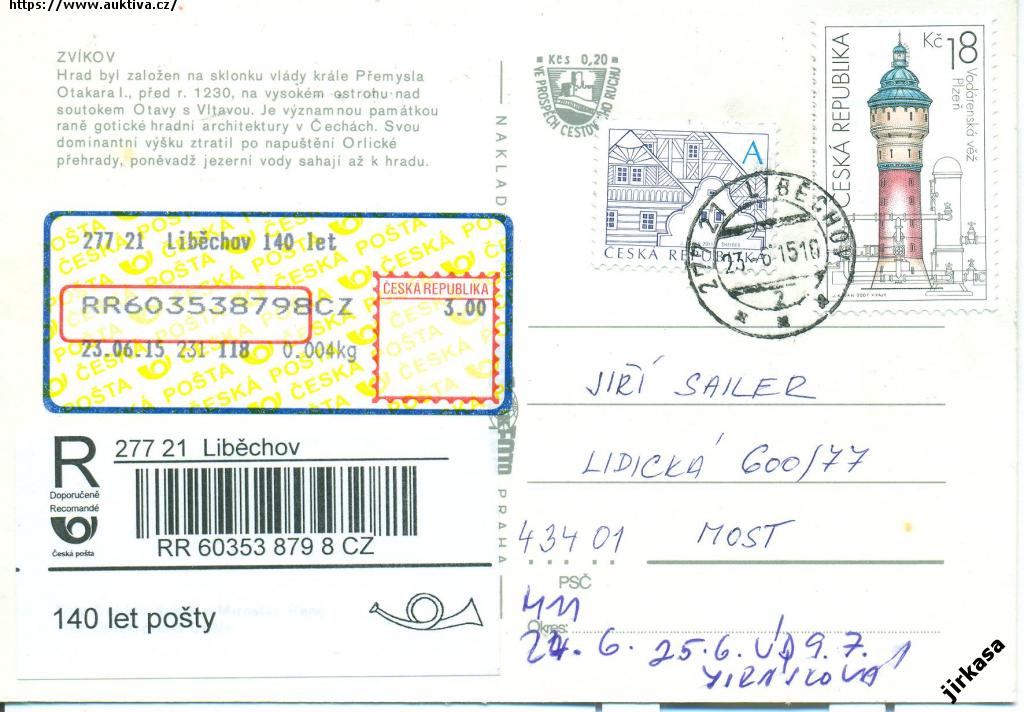 https://www.auktiva.cz/
ZVÍKOV
Hrad byl založen na sklonku vlády krále Přemysla
Otakara I., před r. 1230, na vysokém ostrohu nad
soutokem Otavy s Vltavou. Je významnou památkou
raně gotické hradní architektury v Čechách. Svou
dominantní výšku ztratil po napuštění Orlické
přehrady, poněvadž jezerní vody sahají až k hradu.
Kčs 0,20
VE PROSPĚCH CESTOVNÍHO RUCHU
A
ČESKÁ REPUBLIKA
Kč 18
ČESKÁ REPUBLIKA
Vodárenská věž
Plzeň
277 21 LIBĚCHOV
23.-6.15 10
2
NAKLAD
PRAHA
277 21 Liběchov 140 let
RR603538798CZ
ČESKÁ REPUBLIKA
3.00
23.06.15 231 118 0.004kg
ČESKÁ POŠTA
R
277 21 Liběchov
Doporučeně
Recomandé
Česká pošta
RR 60353 879 8 CZ
140 let pošty
JIŘÍ SAILER
LIDICKÁ 600/77
434 01 MOST
PSČ
Okres:
25.6. 9.7.
jirkasa